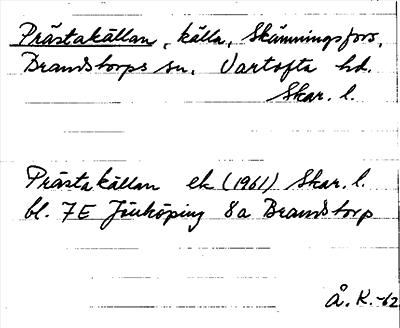 Prästakällan, källa, Skämningsfors,
Brandstorps sn, Vartofta hd.
Skar. l.
Prästakällan ek (1961) Skar. l.
bl. 7E Jönköping 8a Brandstorp
Å. K. -62